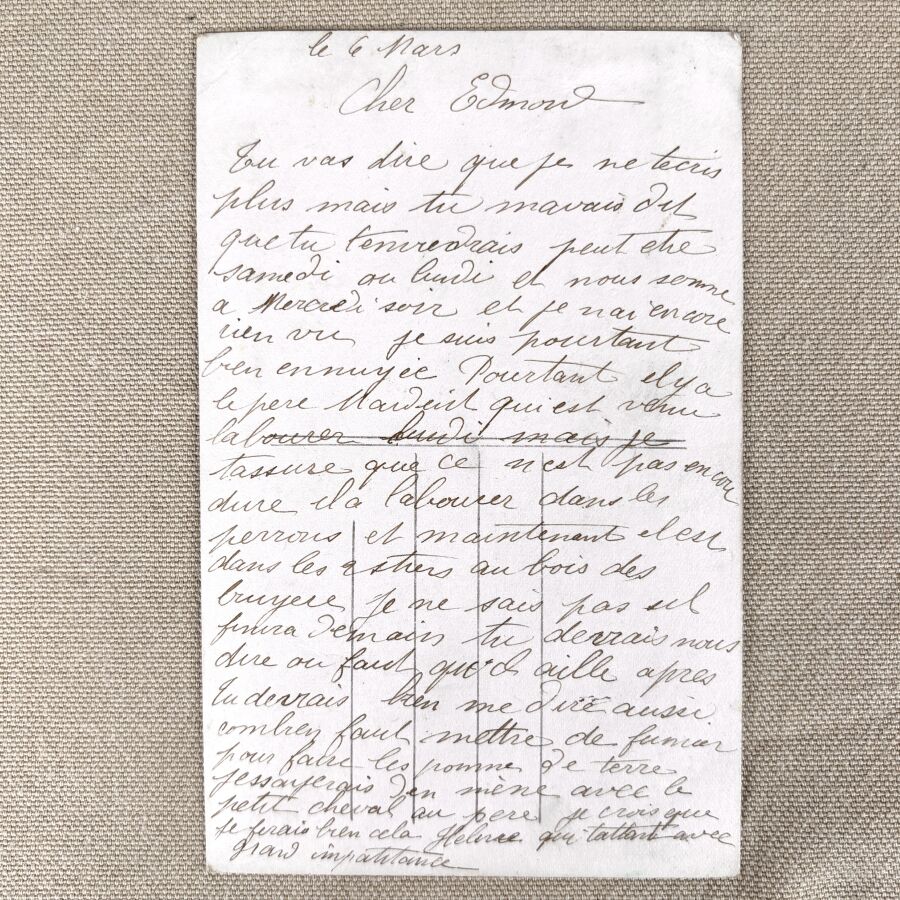 le 6 Mars
Cher Edmond
Tu vas dire que je ne tecris
plus mais tu mavais dit
que tu peut etre
samedi ou lundi et nous somme
a Mercredi soir et je nai encore
rien vu je suis pourtant
bien ennuyée Pourtant il y a
le pere qui est venu
labourer lundi mais je
tassure que ce nest pas encore
dure il a labourer dans les
perrons et maintenant il est
dans les au bois des
bruyere je ne sais pas sil
finira demain tu devrais nous
dire ou faut qu'il aille apres
Tu devrais bien me dire aussi
combien faut mettre de fumier
pour faire les pomme de terre
jessayerais den mené avec le
petit cheval au pere je crois que
je ferais bien cela Helene qui tattant avec
grand impatitance